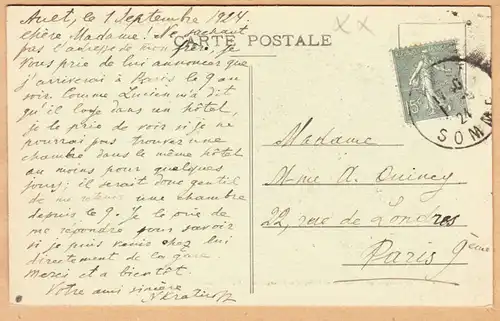 Ault, le 1 Septembre 1924
Chère Madame! Ne sachant
pas l'adresse de mon frère, je
vous prie de lui annoncer que
j'arriverai à Paris le 9 au
soir. Comme Lucien m'a dit
qu'il loge dans un hôtel,
je le prie de voir si je ne
pourrai pas trouver une
chambre dans le même hôtel
au moins pour quelques
jours; il serait donc gentil
de me retenir une chambre
depuis le 9. Je le prie de
me répondre pour savoir
si je puis venir chez lui
directement de la gare
Merci et a bientôt.
Votre ami sincère
CARTE POSTALE
SOMME
24
Madame
Mme A. Quincy
22, rue de Londres
Paris 9ème